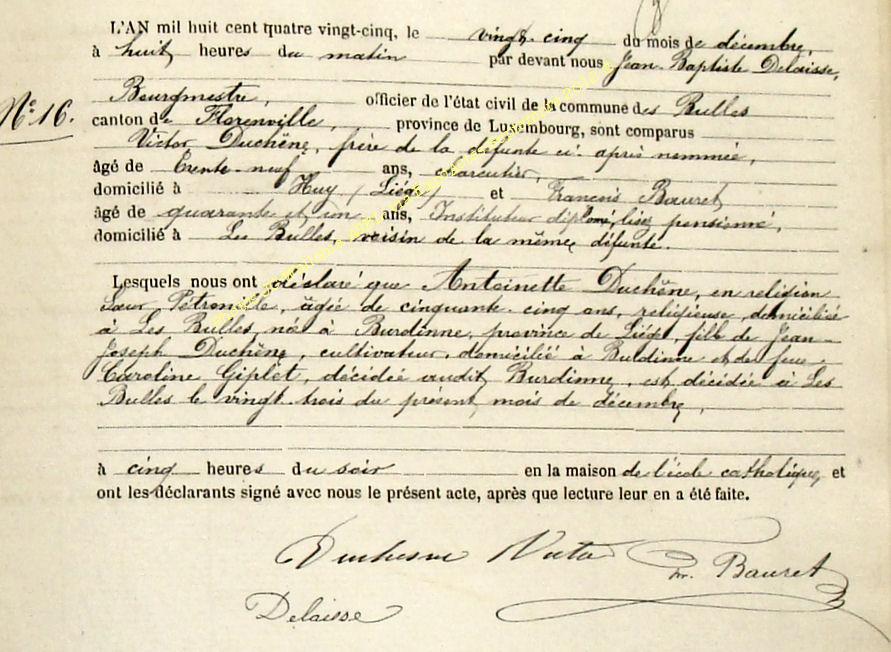 L'AN mil huit cent quatre vingt-cinq, le vingt-cinq du mois de décembre,
à huit heures du matin par devant nous Jean-Baptiste Delaisse,
Bourgmestre, officier de l'état civil de la commune des Bulles
N° 16.
canton de Florenville, province de Luxembourg, sont comparus
Victor Duchêne, frère de la défunte ci-après nommée,
âgé de trente-neuf ans, charcutier,
domicilié à Huy (Liége) et François Bauret
âgé de quarante et un ans, Instituteur diplomé, lisez pensionné,
domicilié à Les Bulles, voisin de la même défunte.
Lesquels nous ont déclaré que Antoinette Duchêne, en religion
Sœur Pétronille, âgée de cinquante-cinq ans, religieuse, domiciliée
à Les Bulles, née à Burdinne, province de Liége, fille de Jean-
Joseph Duchêne, cultivateur, domicilié à Burdinne et de feue
Caroline Giplet, décédée audit Burdinne, est décédée à Les
Bulles le vingt-trois du présent mois de décembre,
à cinq heures du soir en la maison de l'école catholique, et
ont les déclarants signé avec nous le présent acte, après que lecture leur en a été faite.
Duchesne Victor Fr. Bauret
Delaisse